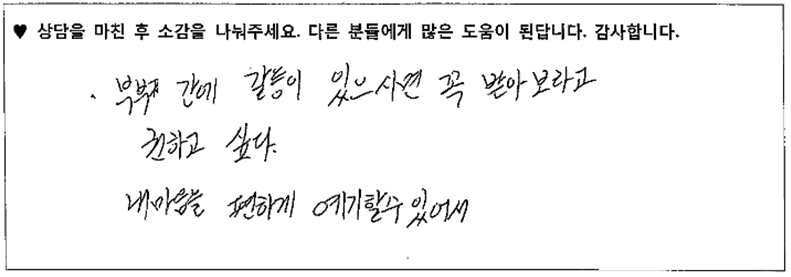 ♥ 상담을 마친 후 소감을 나눠주세요. 다른 분들에게 많은 도움이 된답니다. 감사합니다.
. 부부 간에 갈등이 있으시면 꼭 받아보라고
권하고 싶다.
내마음을 편하게 얘기할수있어서